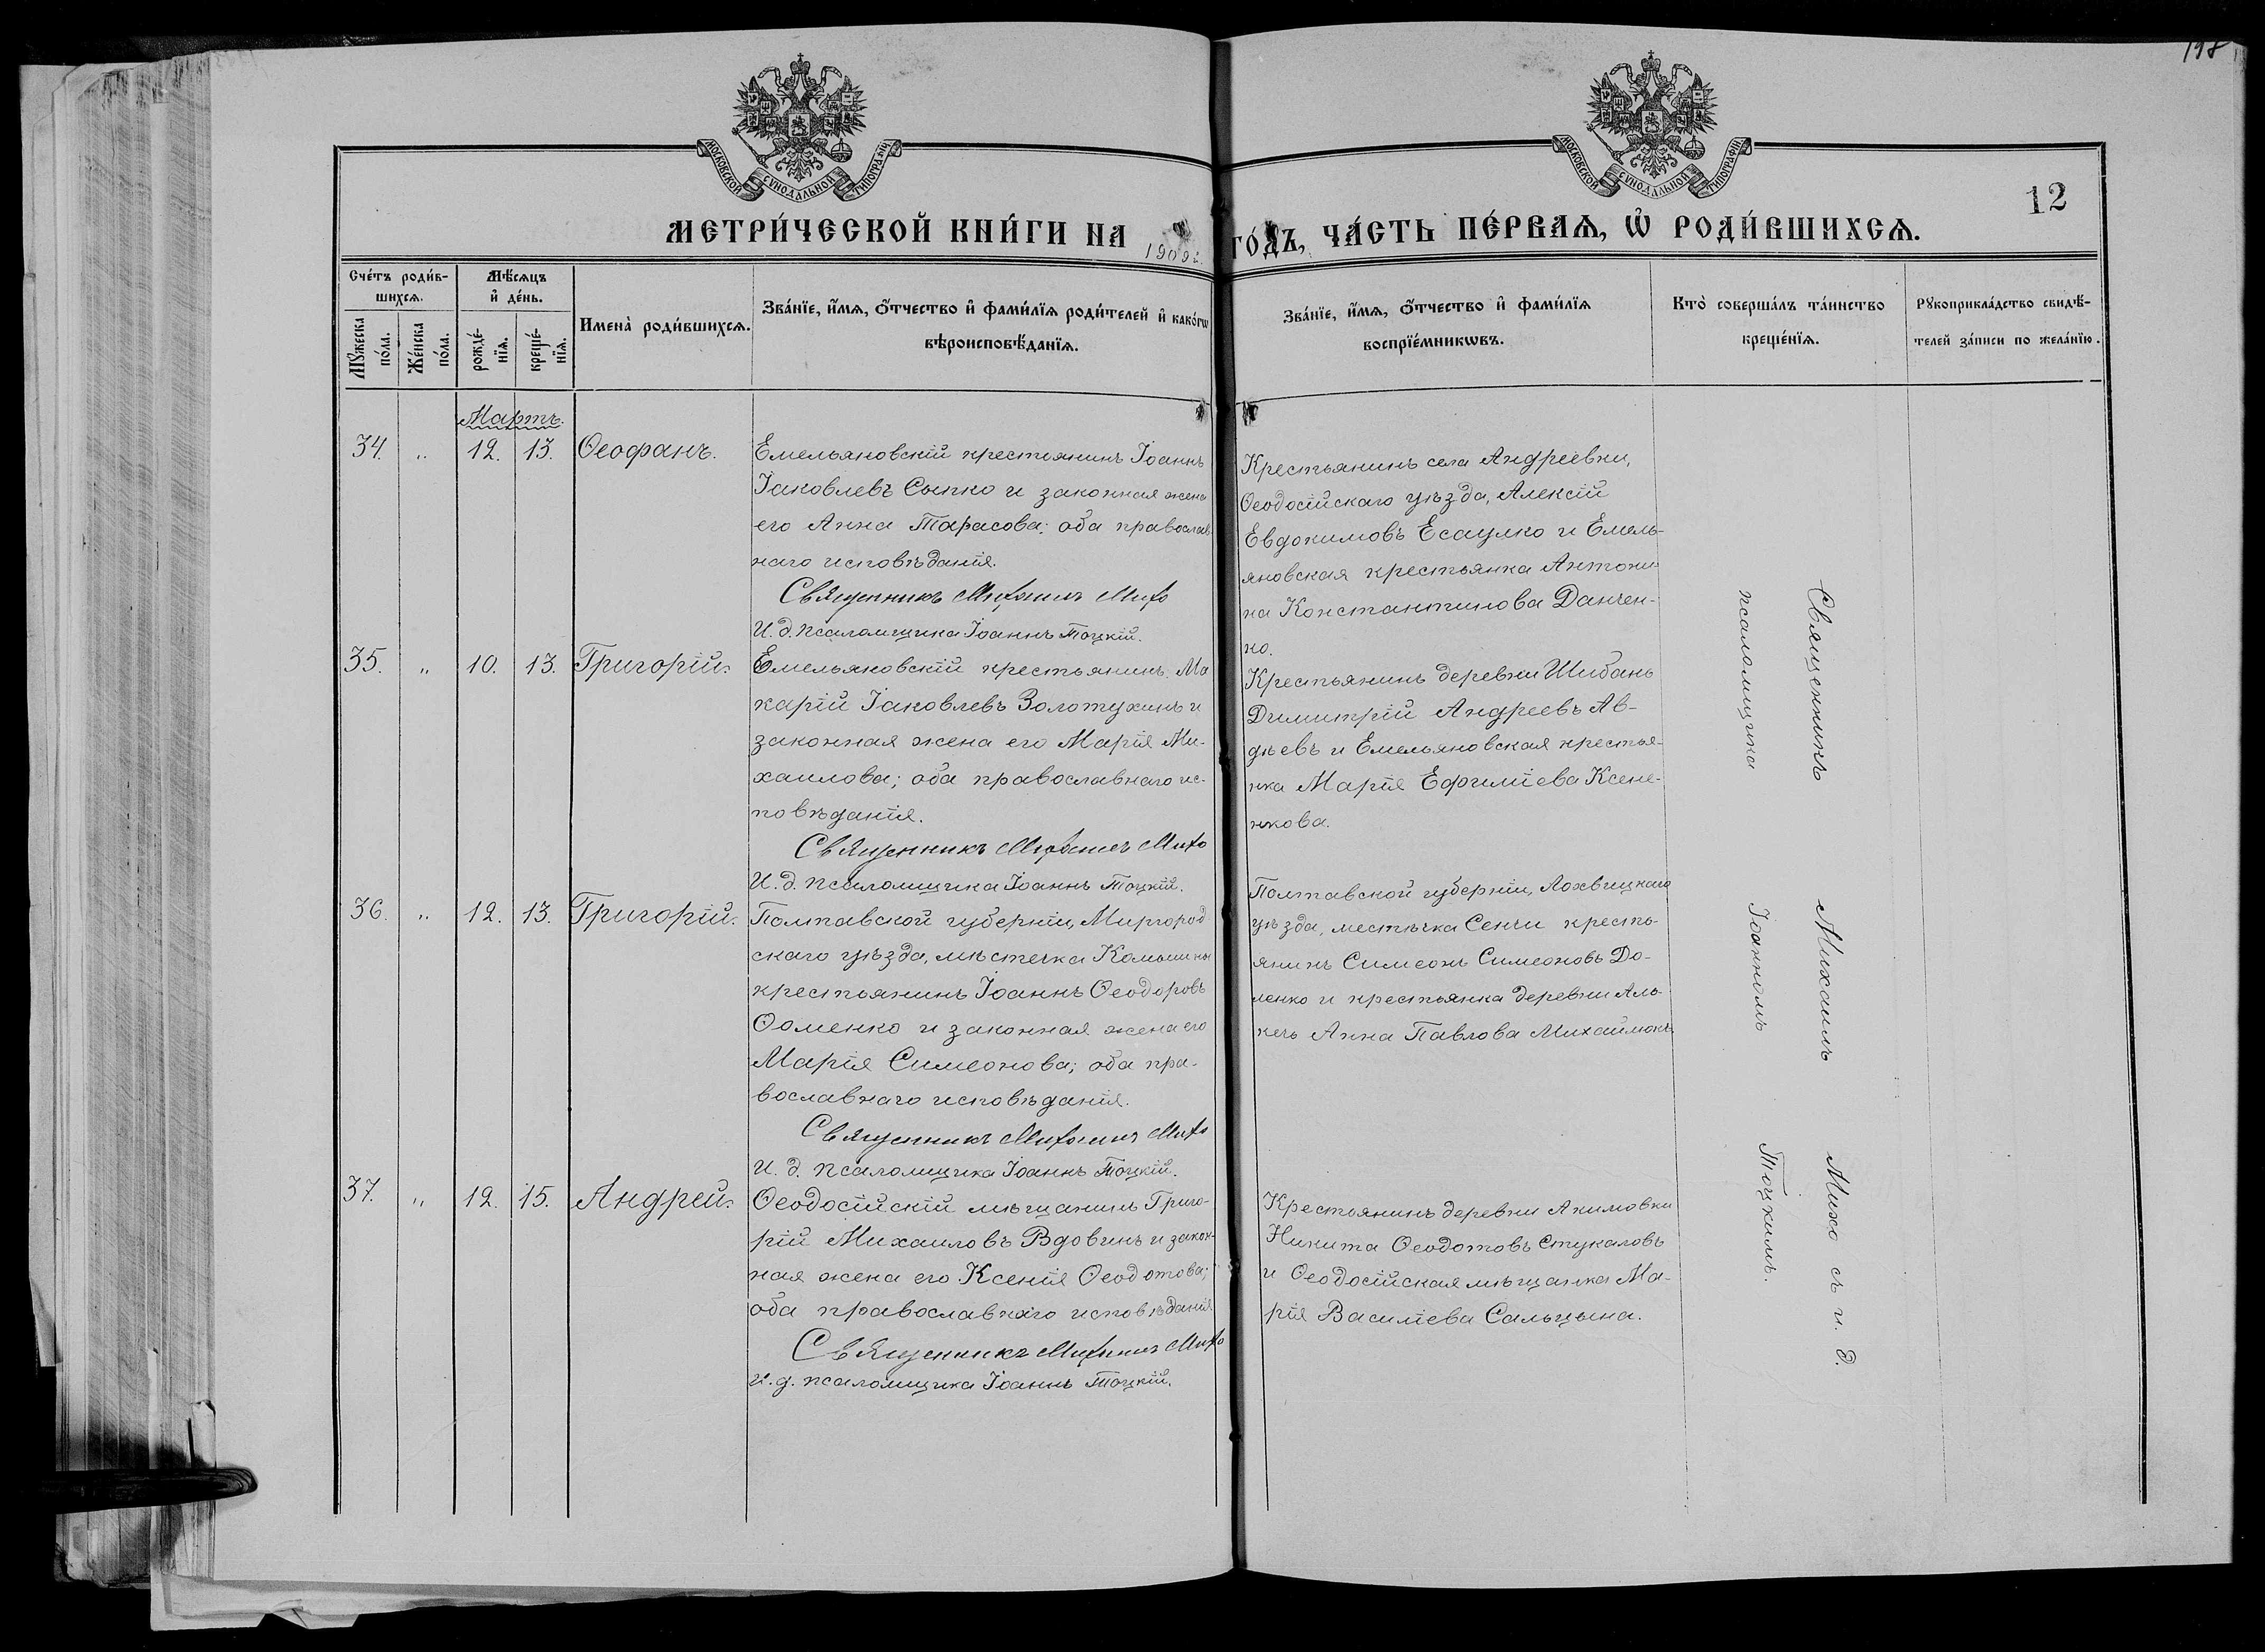 198
МОСКОВСКОЙ СѴНОДАЛЬНОЙ ТИПОГРАФІИ
МОСКОВСКОЙ СѴНОДАЛЬНОЙ ТИПОГРАФІИ
12
МЕТРИ́ЧЕСКОЙ КНИ́ГИ НА 1909 г. ГО́ДЪ, ЧА́СТЬ ПЕ́РВАѦ, Ѡ҆ РОДИ́ВШИХСѦ.
Сче́тъ роди́в-
шихсѧ.
Мѣ́сѧцъ
и҆ де́нь.
Мꙋ́жеска по́ла.
Же́нска по́ла.
рожде́-
нїѧ.
креще́-
нїѧ.
Имена̀ роди́вшихсѧ.
Зва́нїе, и҆́мѧ, ѻ҆́тчество и҆ фами́лїѧ роди́телей и҆ како́гѡ
вѣроисповѣ́данїѧ.
Зва́нїе, и҆́мѧ, ѻ҆́тчество и҆ фами́лїѧ
воспрїе́мникѡвъ.
Кто̀ соверша́лъ та́инство
креще́нїѧ.
Рꙋкоприкла́дство свидѣ́-
телей за́писи по жела́нїю.
Мартъ.
34. „ 12. 13. Ѳеофанъ.
Емельяновскій крестьянинъ Іоаннъ
Іаковлевъ Сыпко и законная жена
его Анна Тарасова; оба православ-
наго исповѣданія.
Священникъ Михаилъ Михо
И. д. псаломщика Іоаннъ Тоцкій.
Крестьянинъ села Андреевки,
Ѳеодосійскаго уѣзда, Алексій
Евдокимовъ Есаулко и Емель-
яновская крестьянка Антони-
на Константинова Данчен-
ко.
35. „ 10. 13. Григорій.
Емельяновскій крестьянинъ Ма
карій Іаковлевъ Золотухинъ и
законная жена его Марія Ми-
хаилова; оба православнаго ис-
повѣданія.
Священникъ Михаилъ Михо
И. д. псаломщика Іоаннъ Тоцкій.
Крестьянинъ деревни Шибань
Димитрій Андреевъ Ав-
дѣевъ и Емельяновская крестья-
нка Марія Ефиміева Ксене-
нкова.
36. „ 12. 13. Григорій.
Полтавской губерніи, Миргород
скаго уѣзда, мѣстечка Комышны
крестьянинъ Іоаннъ Ѳеодоровъ
Ѳоменко и законная жена его
Марія Симеонова; оба пра-
вославнаго исповѣданія.
Священникъ Михаилъ Михо
И. д. псаломщика Іоаннъ Тоцкій.
Полтавской губерніи, Лохвицкаго
уѣзда, местѣчка Сенчи кресть-
янинъ Симеонъ Симеоновъ До-
ленко и крестьянка деревни Аль-
кечь Анна Павлова Михайлюкъ.
37. „ 12. 15. Андрей.
Ѳеодосійскій мѣщанинъ Григо-
рій Михаиловъ Вдовинъ и закон-
ная жена его Ксенія Ѳеодотова;
оба православнаго исповѣданія
Священникъ Михаилъ Михо
И. д. псаломщика Іоаннъ Тоцкій.
Крестьянинъ деревни Акимовки
Никита Ѳеодотовъ Стукаловъ
и Ѳеодосійская мѣщанка Ма-
рія Василіева Сальцына.
Священникъ Михаилъ Михо съ и. д.
псаломщика Іоанномъ Тоцкимъ.